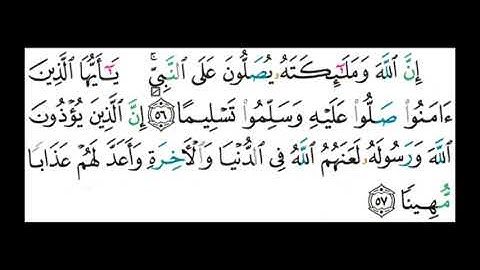 إِنَّ ٱللَّهَ وَمَلَٰٓئِكَتَهُۥ يُصَلُّونَ عَلَى ٱلنَّبِيِّۚ يَٰٓأَيُّهَا ٱلَّذِينَ
ءَامَنُوا۟ صَلُّوا۟ عَلَيْهِ وَسَلِّمُوا۟ تَسْلِيمًا ٥٦ إِنَّ ٱلَّذِينَ يُؤْذُونَ
ٱللَّهَ وَرَسُولَهُۥ لَعَنَهُمُ ٱللَّهُ فِى ٱلدُّنْيَا وَٱلْءَاخِرَةِ وَأَعَدَّ لَهُمْ عَذَابًا
مُّهِينًا ٥٧